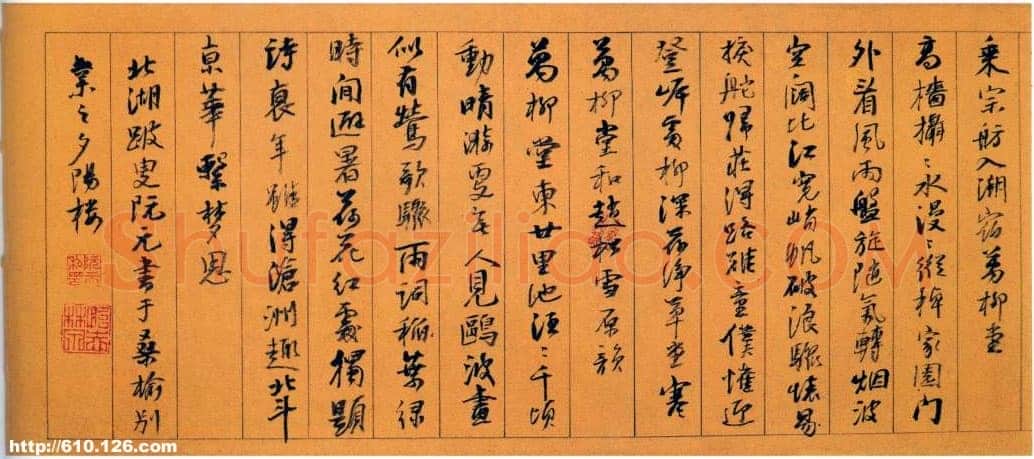 乘宗舫入湖宿萬柳堂
高檣攝〻水漫〻縱掉家園門
外看風雨盤旋隨氣轉烟波
空闊比江寬峭帆破浪驟易
捩舵歸莊得路難童僕懽迎
登岸處柳深荷淨草堂寒
萬柳堂和趙松雪原韻
萬柳堂東廿里池〻千頃
動晴漪更無人見鷗波畫
似有鶯歌驟雨詞稻葉緑
時間避暑荷花紅處獨題
詩衰年得滄洲趣北斗
京華繫夢思
北湖跛叟阮元書于桑榆別
業之夕陽樓
Shufaziliao.COM
http://610.126.com